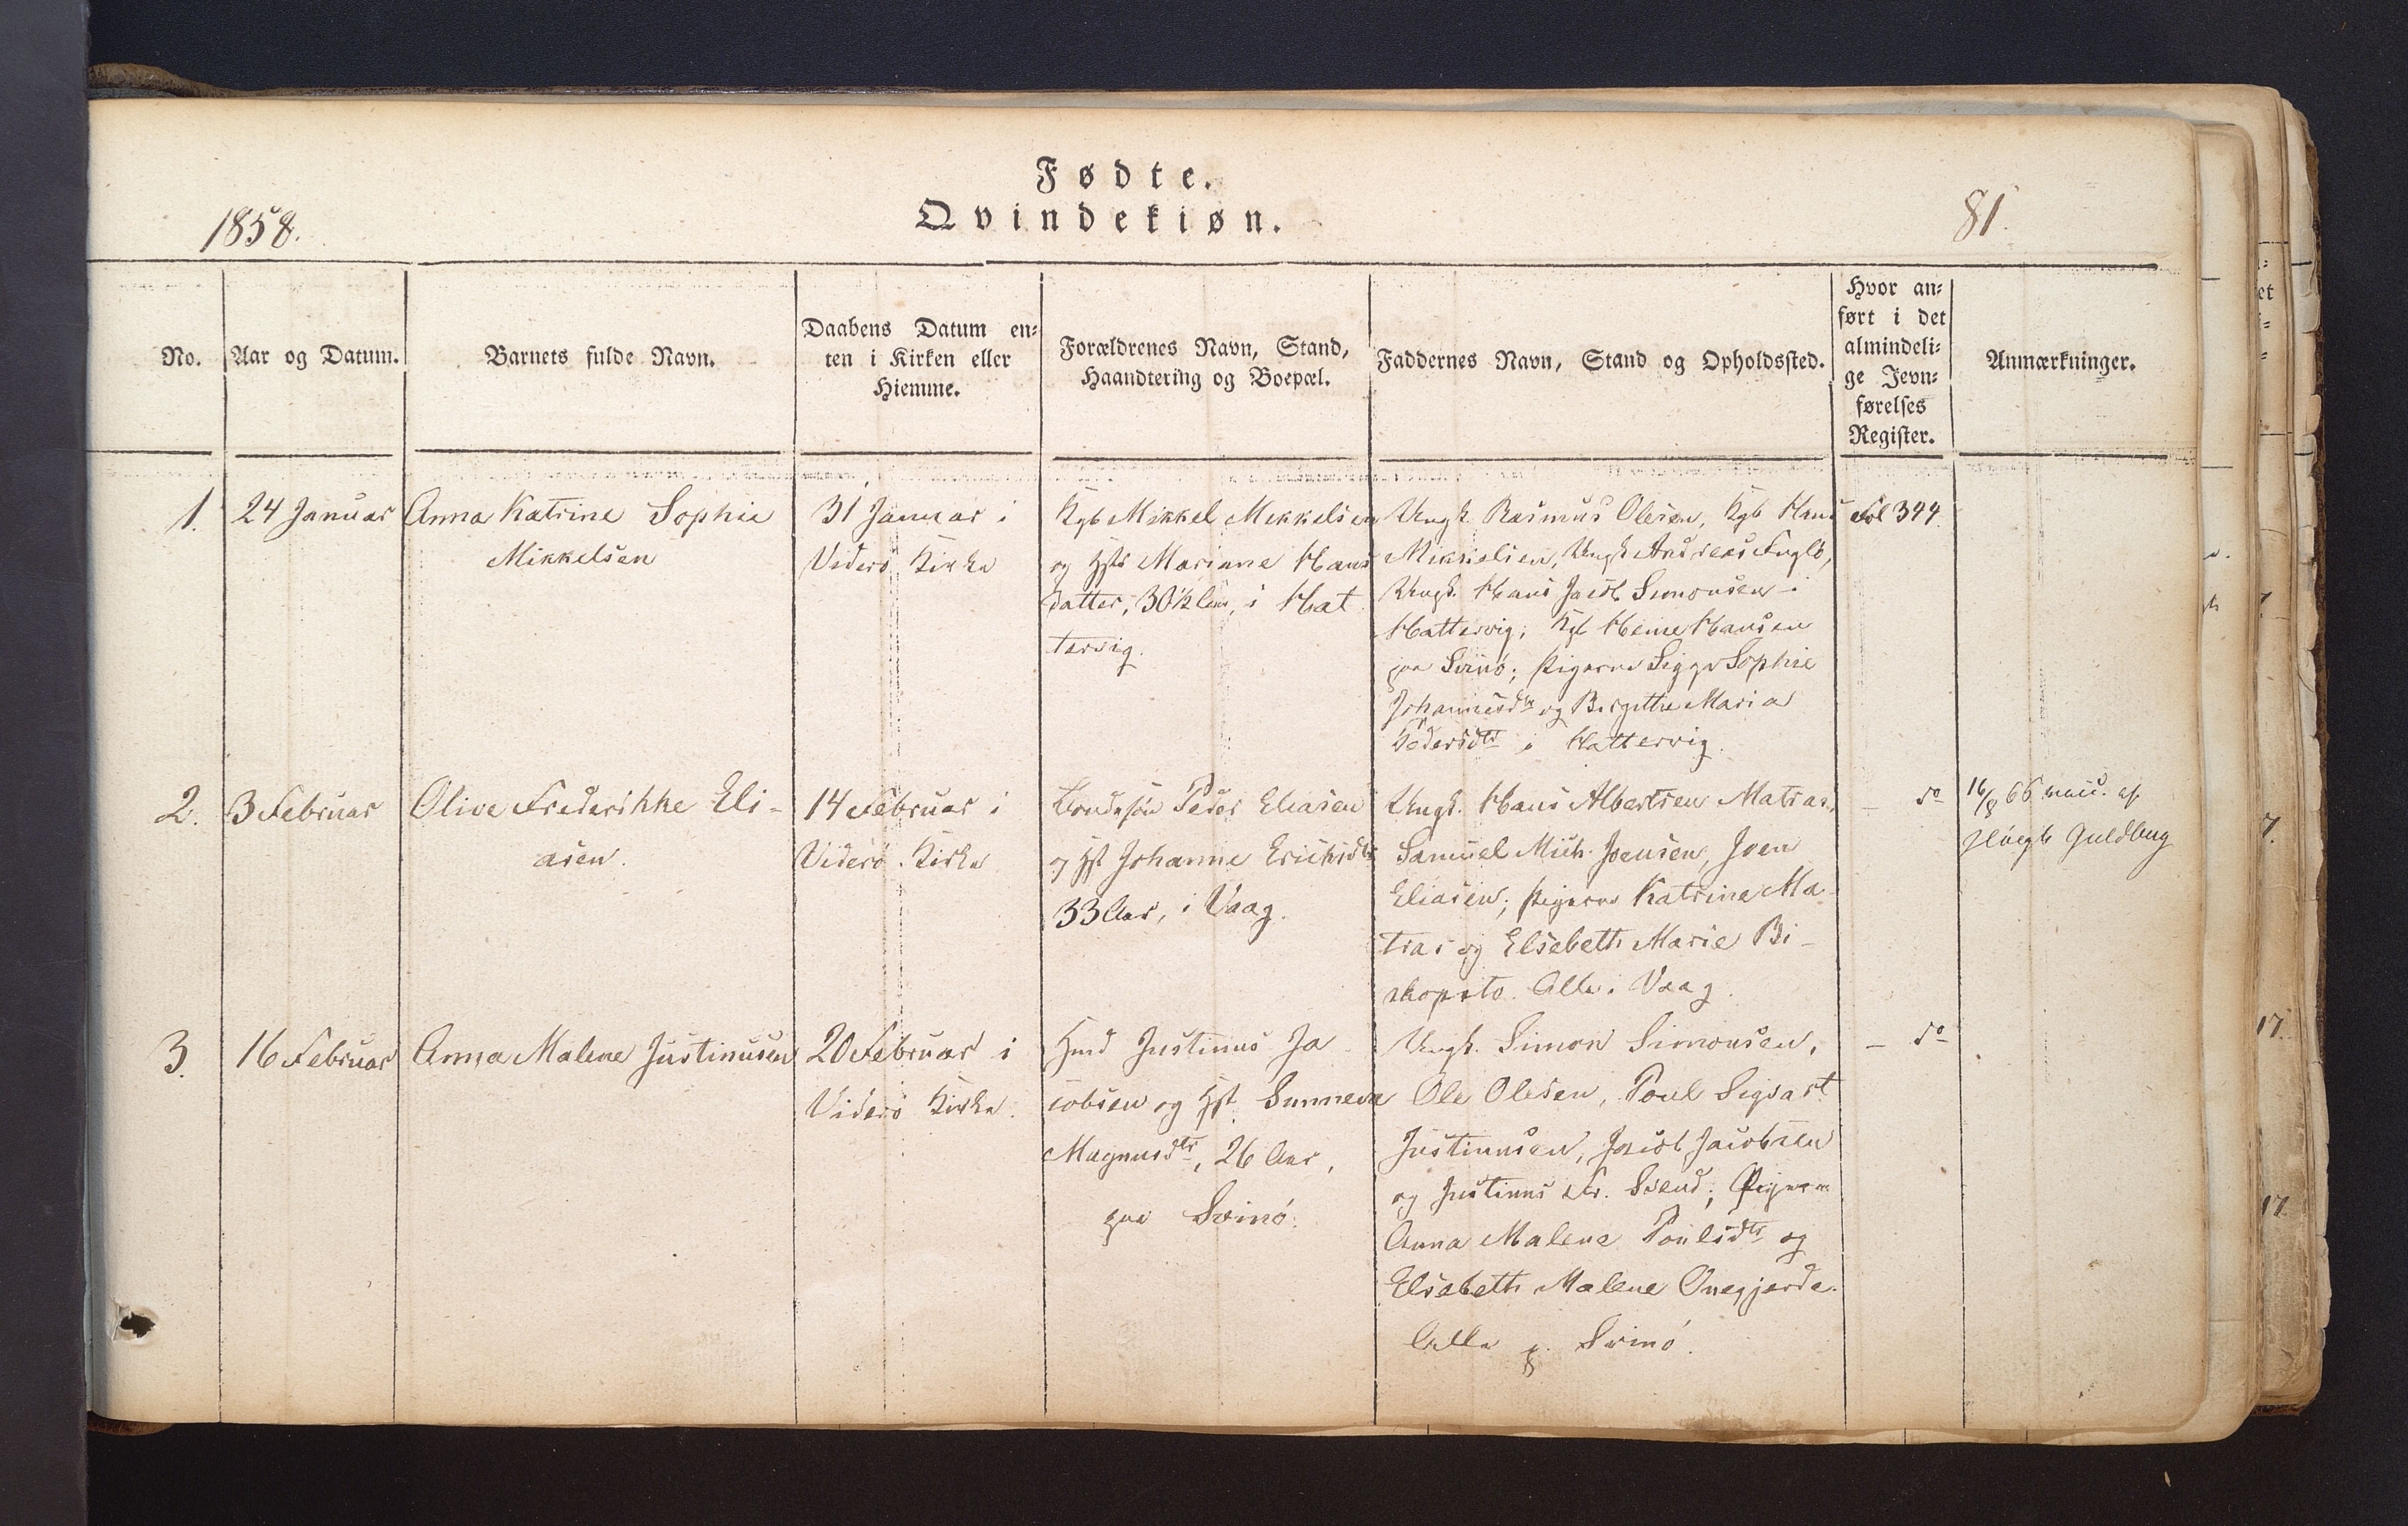 Fødte.
Qvindekiøn.
1858.
81.
No.
Aar og Datum.
Barnets fulde Navn.
Daabens Datum en-
ten i Kirken eller
Hiemme.
Forældrenes Navn, Stand,
Haandtering og Boepæl.
Faddernes Navn, Stand og Opholdssted.
Hvor an-
ført i det
almindeli-
ge Jevn-
førelses
Register.
Anmærkninger.
1.
24 Januar
Anna Katrine Sophie
Mikkelsen
31 Januar i
Viderø Kirke
Kgb Mikkel Mikkelsen
og Hst Mariane Hans
datter, 30½ Aar, i Hat
tervig.
Ungk. Rasmus Olesen, Kgb Hans
Mikkelsen, Ungk Andreas Fuglø,
Ungk. Hans Jacob Simonsen i
Hattervig; Kgb Heine Hansen
paa Svinø; Pigerne Sigga Sophie
Johannesdtr og Birgitte Maria
Pedersdtr i Hattervig.
Fol 344.
2.
3 Februar
Olive Frederikke Eli-
asen.
14 Februar i
Viderø Kirke
Bondesøn Peder Eliasen
og Hst Johanne Erichsdtr
33 Aar, i Vaag.
Ungk. Hans Albertsen Matras,
Samuel Mich. Joensen, Joen
Eliasen; Pigerne Katrine Ma-
tras og Elsebeth Marie Bi-
skopsto. Alle i Vaag.
— do
16/8 66 vacc. af
Guldberg
3.
16 Februar
Anna Malene Justinusen
20 Februar i
Viderø Kirke.
Hmd Justinus Ja
cobsen og Hst Sunneva
Magnusdtr, 26 Aar,
paa Svinø.
Ungk. Simon Simonsen,
Ole Olesen, Poul Sigvart
Justinusen, Jacob Jacobsen
og Justinus Fr. Svend; Pigerne
Anna Malene Poulsdtr og
Elsebeth Malene Onegjerde.
Alle p. Svinø.
— do